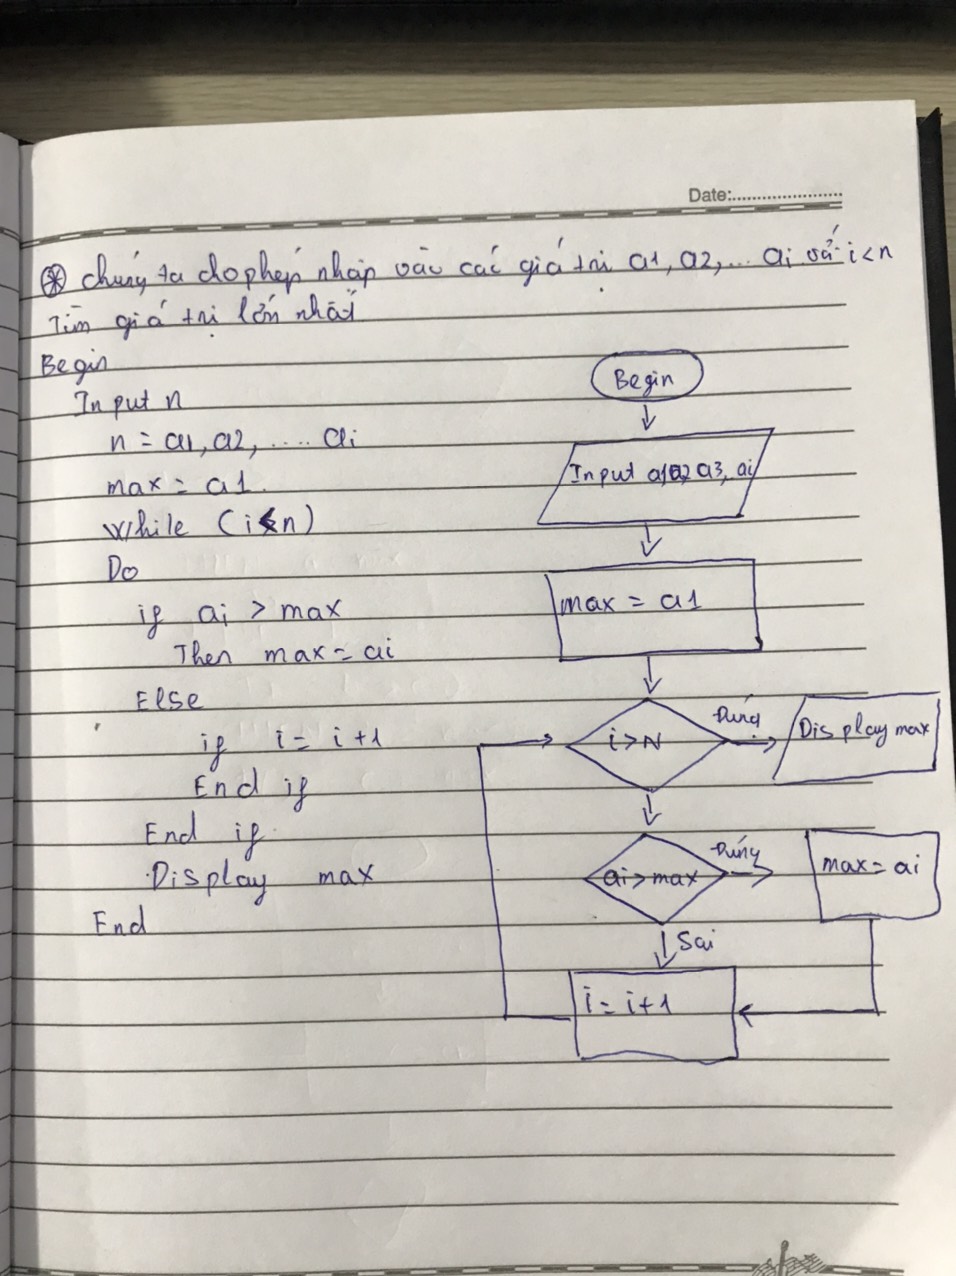 Date:
⊛ chúng ta cho phép nhập vào các giá trị a1, a2, ... ai với i < n
Tìm giá trị lớn nhất
Begin
Input n
n = a1, a2, .... ai
max = a1
While (i < n)
Do
if ai > max
Then max = ai
Else
if i = i + 1
End if
End if
Display max
End
Begin
Input a1, a2, a3, ai
max = a1
i > N
Đúng
Display max
ai > max
Đúng
max = ai
Sai
i = i + 1